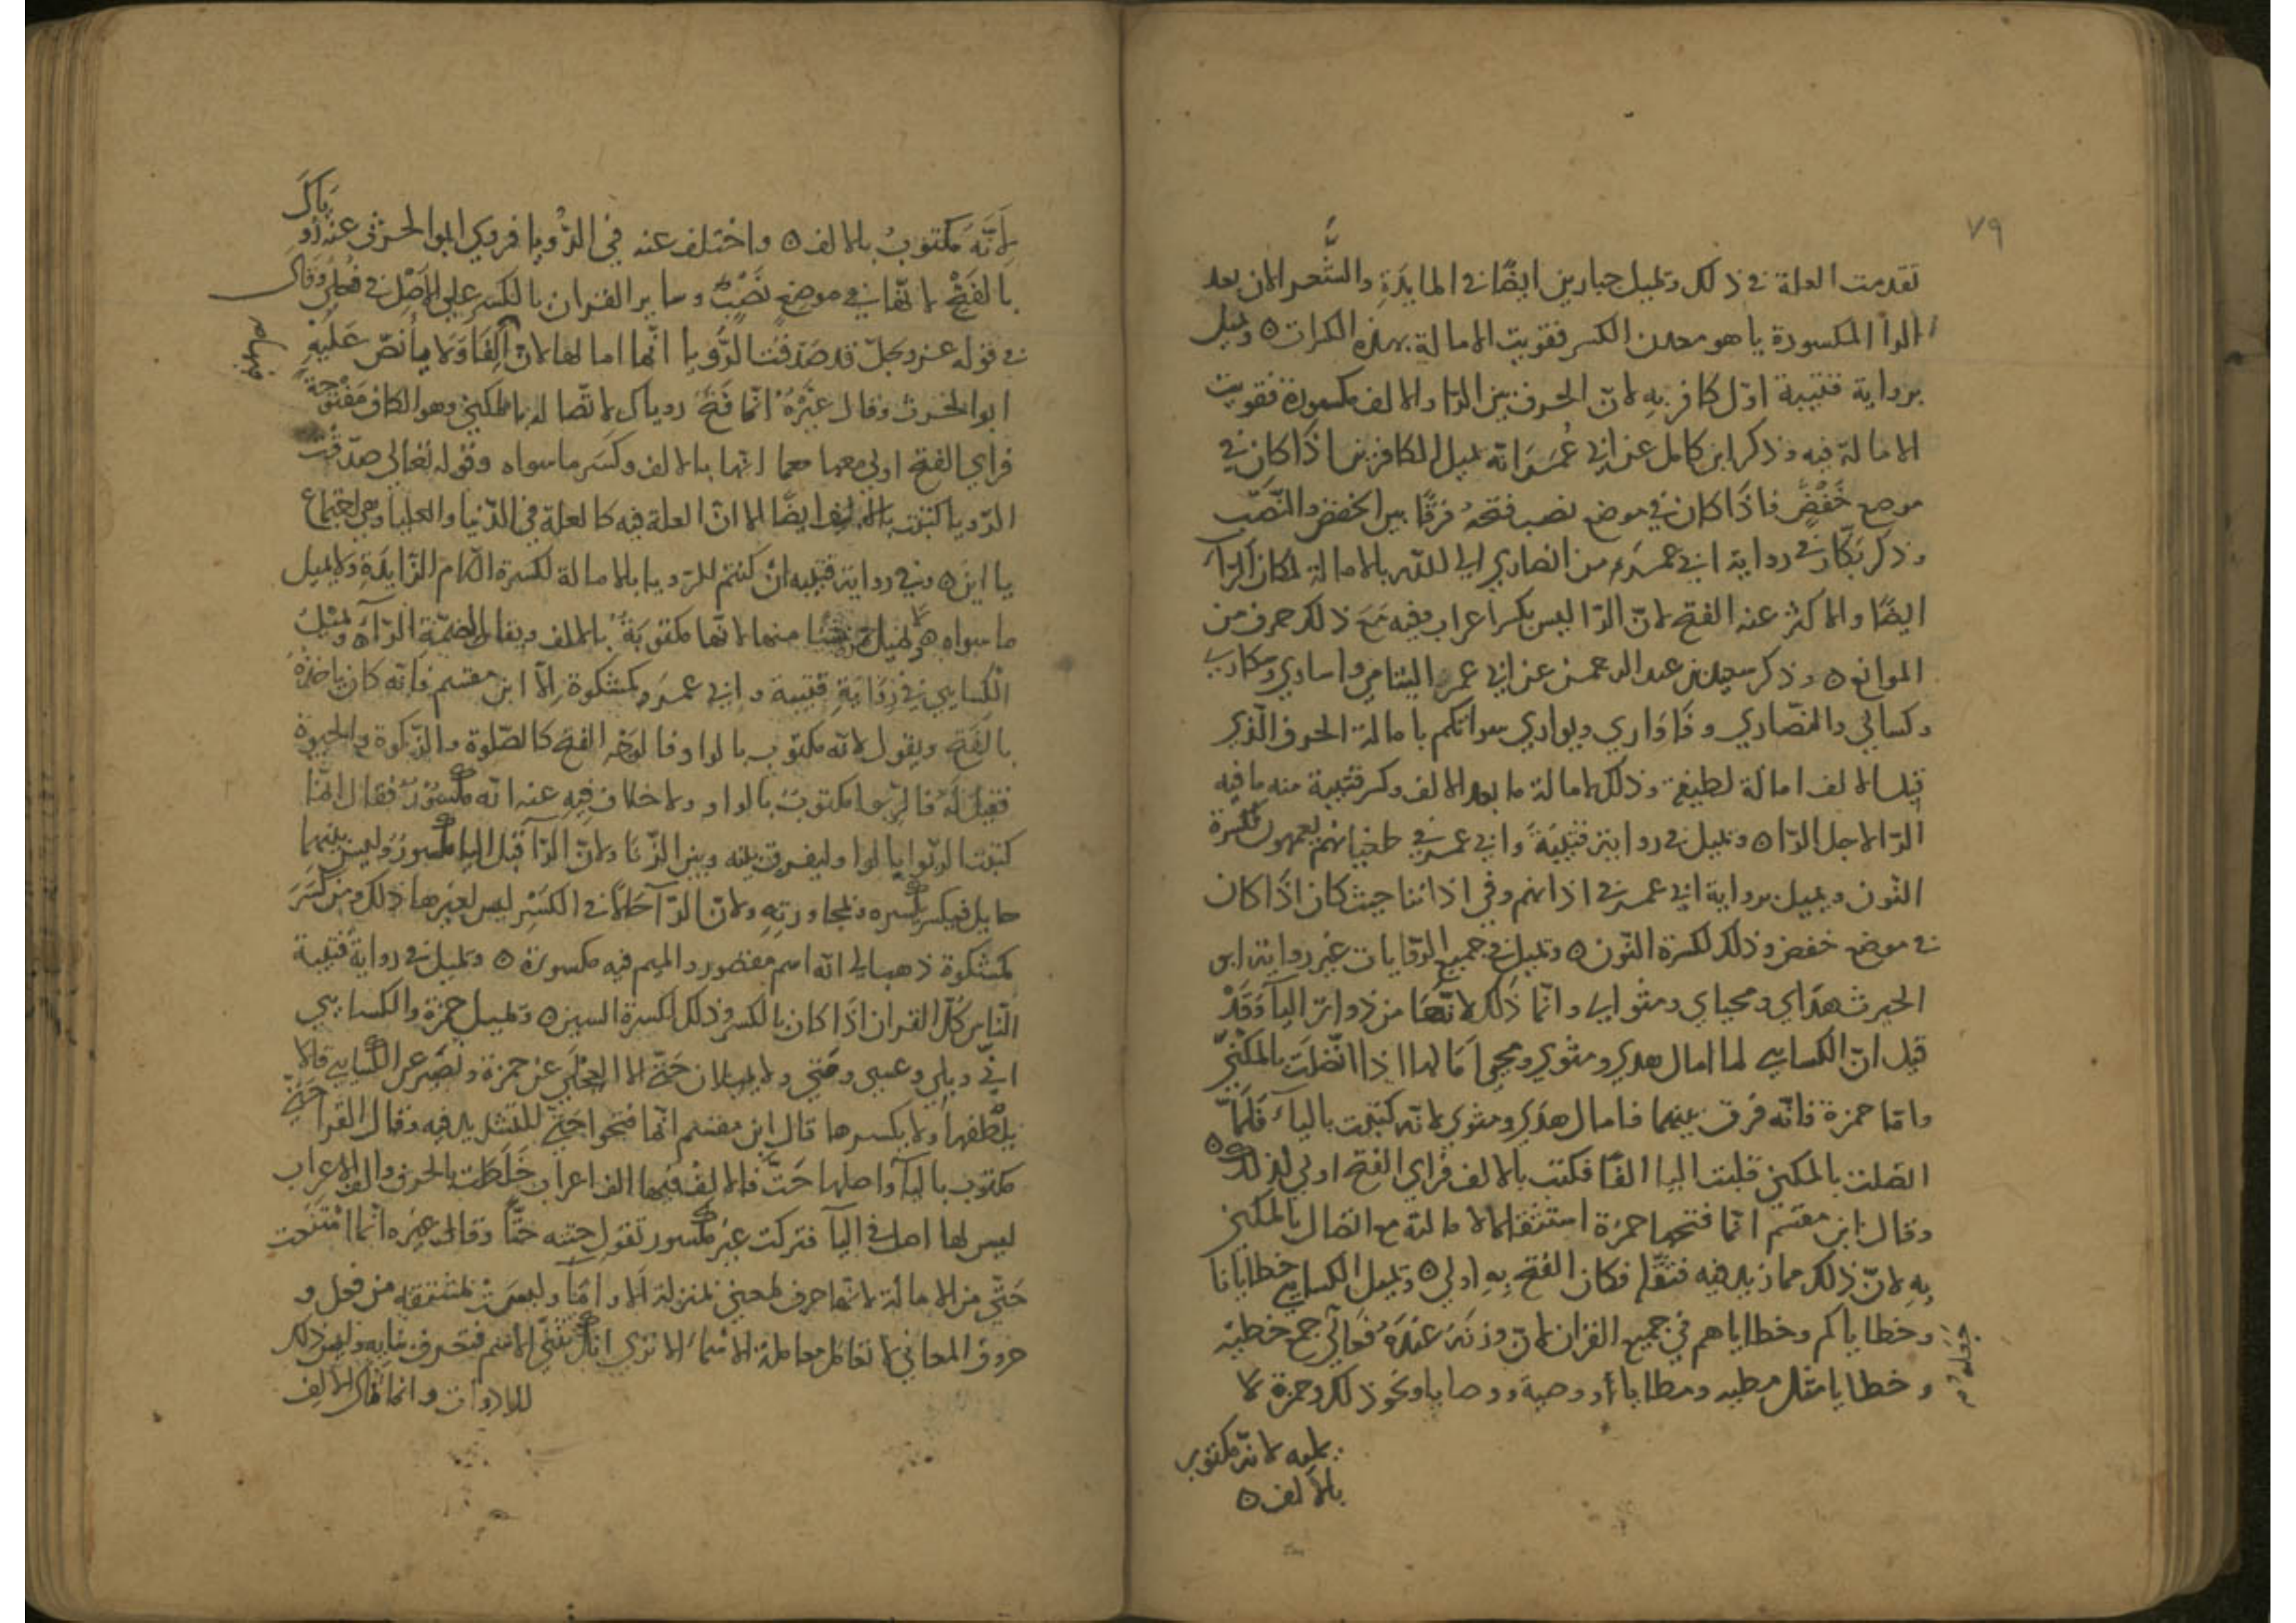 ٧٩
تقدمت العلة في ذلك وتميل جبارين ايضًا في المايدَةِ والشُّعرا لان بعد
الرا المكسورة يا هو معدن الكسر فقويت الامالة بهذه الكسرات ٥ وتميل
برواية قتيبة اوّل كافر بهِ لانّ الحرف بين الرّا والالف مكسورة فقويت
الامالة فيه وذكر ابن كامل عن ابي عُمَرَ انّه يميل الكافرين اذا كان في
موضع خَفْضٍ فاذَا كان في موضع نصب فتحهُ فرقًا بين الخفض والنّصْب
وذكر بكّار في رواية ابي عمَرَ من انصاري الى الله بالامالة لمكان الرّا
ايضًا والاكثر عنه الفتح لانّ الرّا ليس بكسر اعراب وفيه مَعَ ذلك حرف من
الموانع ٥ وذكر سعيد بن عبد الرحمن عن ابي عمر اليتامى واسارى وسكارى
وكسالى والنصّارى وفَاُوَاري ويواري سواتكم بامالة الحرف الّذي
قبل الالف امالة لطيفة وذلك لامالة ما بعد الالف وكسر قتيبة منه ما فيه
الرّا لاجل الرّا ٥ وتميل في رواية قتيبَةَ وابي عمر في طغيانهم يعمهون لكسرة
النّون ويميل برواية ابي عمر في اذانهم وفي اذاننا حيث كان اذَا كان
في موضع خفض وذلك لكسرة النّون ٥ وتميل في جميع الرّوايات غير رواية ابي
الحرث هدَاي ومحياي ومثواي وانّما ذَلك لانّهَا من ذوات اليآ وَقَدْ
قيل انّ الكساي لما امال هدى ومثوى ومحيا امَالها اذا اتّصلَت بالمكنيّ
وامّا حمزة فانّه فرق بينهما فامال هدَى ومثوى لانّه كتبت بالياء فَلمّا
اتصلت بالمكني قلبت اليا الفًا فكتب بالالف فراى الفتح اولى لذلك ٥
وقال ابن مقسم انّما فتحها حمزة استثقالا لامالته مع اتصال بالمكني
بِهِ لانّ ذلك مما زيد فيه فثقّل فكان الفتح بِهِ اولى ٥ وتميل الكساي خطايانا
وخطاياكم وخطاياهم في جميع القران لانّ وزنَهُ عندَهُ فعَالَى جمع خطية
وخطايا مثل مطيه ومطايا أو وصية ووصايا ونحو ذلك وحمزة لا
يميله لانه مكتوب
بالالف ٥
لِانَّهُ مكتوبٌ بالالف ٥ واختلف عنه في الرّؤيا فروى ابو الحرث عنه رُو
ياكَ
بالفَتْح لانّها في موضع نَصْبٍ وساير القران بالكسر على الاصْل في فُعلى وَقال
في قوله عز وجلّ قد صَدقتَ الرُّويا انّما امالها لانّ الِفَا وَلامِا نُصّ عَلَيْهِ
ابو الحرث وقال غيْرُهُ انّما فَتَحَ روياك لاتّصاله بالمكنيّ وهو الكاف مَفْتُوحَةً
فراى الفتح اولى معها مما انها بالالف وكسَر ما سواه وقوله تعالى صدّقتَ
الرّويا كتبت بالالف ايضًا الا انّ العلة فيه كالعلة في الدّنيا والعليا وهي اجتماع
يااين ٥ وفي رواية قتيبه انْ كنتم للرّويا بالامالة لكسرة اللّام الزّايدَةِ ولا يميل
ما سواه منها لانّها مكتوبَةٌ بالالف ويقال لضمّة الرّآء ٥ وتميلُ
الْكساي في رِوَايَةِ قتيبة وابي عمَرَ وكمشكوة اِلّا ابن مقسم فانّه كان ياخذهُ
بالفَتح ويقول لانّه مكتوب بالواو فالوجْه الفتح كالصّلوة والزّكوة والحيوة
فقيلَ لَهُ فالرّبوا مكتوبٌ بالواو ولا خلاف فِيهِ عنه انّه مكسُورٌ فقال انّما
كتبت الربوا بالواو ليفرق بينه وبين الزّنا ولانّ الرّآ قبل البا مكسورٌ وليس بينهما
حايل فيكسر لكسره ولمجاورتِهِ ولانّ للرّآ حَالاً في الكسْرِ ليس لغيرها ذلك ومن كَسَرَ
كمشكوة ذهب الى انّه اسم مقصور والميم فيه مكسورة ٥ وتميل في روايةَ قتيبة
النّاس كلّ القران اذَا كان بالكسر وذلك لكسرة السين ٥ وتميل حمزة والكسايي
انّى وبلى وعسى ومَتى ولا يميلان حَتّى الا العجْلي عن حمزة ونُصَير عن الكسايي قالا
يلْطفها ولا يكسرها قال ابن مقسم انّما فتحوا حَتّى للتشديد فيه وقال الفرا حَتّى
مكتوب باليآ واصلها حَتَّ فالالف فيها الف اعراب خَلَطَت بالحرف والف الاعراب
ليس لها اصل في اليآ فتركت غير مكسور تقول حتته حَتًّا وقال غيره انّما امتنعت
حَتّى من الامالة لانّها حرف لمعنى بمنزلة الّا وامّا وليسَتْ بمشتقة من فعل و
حروف المعاني لا تعامل معاملة الاسماء الا ترى انّك تثنّي الاسم فتعرف بنايه وليس ذلك
للادوات وانما قال الالف